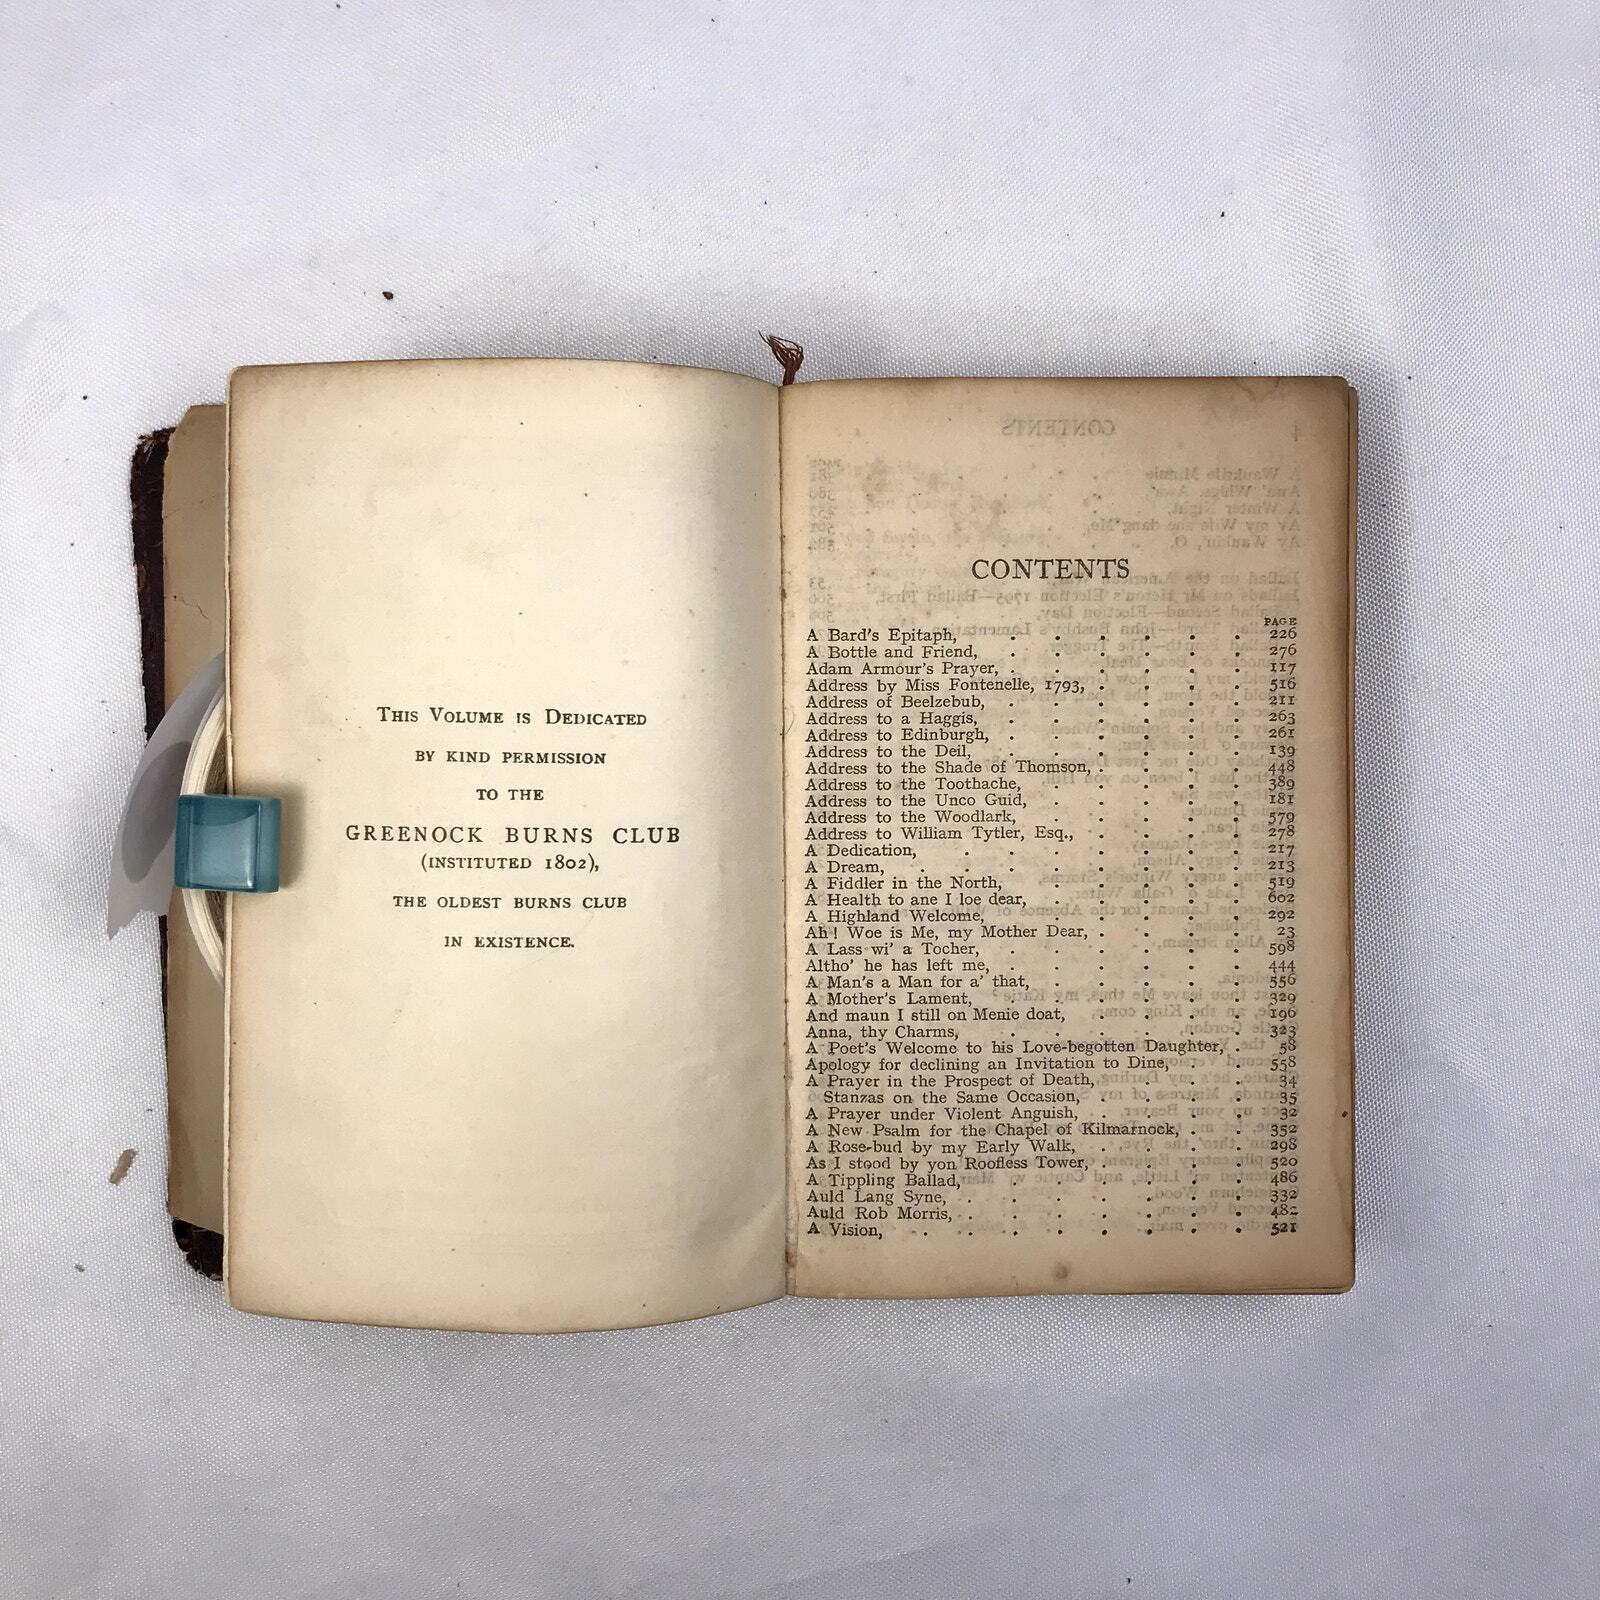 This Volume is Dedicated
by kind permission
to the
GREENOCK BURNS CLUB
(instituted 1802),
the oldest burns club
in existence.
CONTENTS
PAGE
A Bard's Epitaph, . . . . . . 226
A Bottle and Friend, . . . . . . 276
Adam Armour's Prayer, . . . . . . 117
Address by Miss Fontenelle, 1793, . . . . 516
Address of Beelzebub, . . . . . . 211
Address to a Haggis, . . . . . . 263
Address to Edinburgh, . . . . . . 261
Address to the Deil, . . . . . . 139
Address to the Shade of Thomson, . . . . 448
Address to the Toothache, . . . . . 389
Address to the Unco Guid, . . . . . 181
Address to the Woodlark, . . . . . 579
Address to William Tytler, Esq., . . . . 278
A Dedication, . . . . . . . 217
A Dream, . . . . . . . . 213
A Fiddler in the North, . . . . . 519
A Health to ane I loe dear, . . . . . 602
A Highland Welcome, . . . . . . 292
Ah! Woe is Me, my Mother Dear, . . . . 23
A Lass wi' a Tocher, . . . . . . 598
Altho' he has left me, . . . . . . 444
A Man's a Man for a' that, . . . . . 556
A Mother's Lament, . . . . . . 329
And maun I still on Menie doat, . . . . 196
Anna, thy Charms, . . . . . . 323
A Poet's Welcome to his Love-begotten Daughter, . 58
Apology for declining an Invitation to Dine, . . 558
A Prayer in the Prospect of Death, . . . 34
Stanzas on the Same Occasion, . . . . 35
A Prayer under Violent Anguish, . . . . 32
A New Psalm for the Chapel of Kilmarnock, . . 352
A Rose-bud by my Early Walk, . . . . 298
As I stood by yon Roofless Tower, . . . . 520
A Tippling Ballad, . . . . . . 486
Auld Lang Syne, . . . . . . . 332
Auld Rob Morris, . . . . . . .
A Vision, . . . . . . . . 521